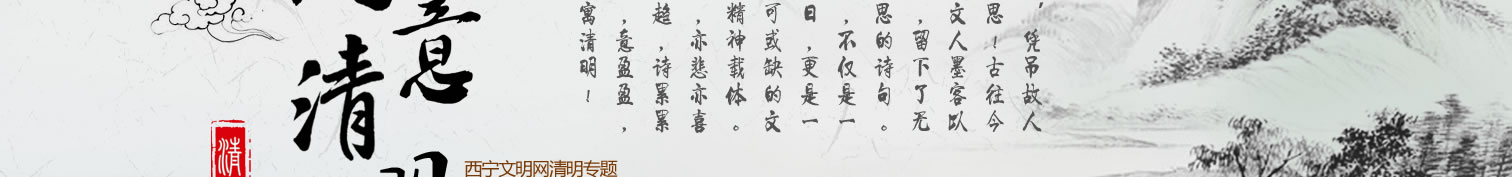 ，凭吊故人
思！古往今
文人墨客以
，留下了无
思的诗句。
，不仅是一
日，更是一
可或缺的文
精神载体。
，亦悲亦喜
，诗累累
，意盈盈，
寓清明！
意
清
清
西宁文明网清明专题